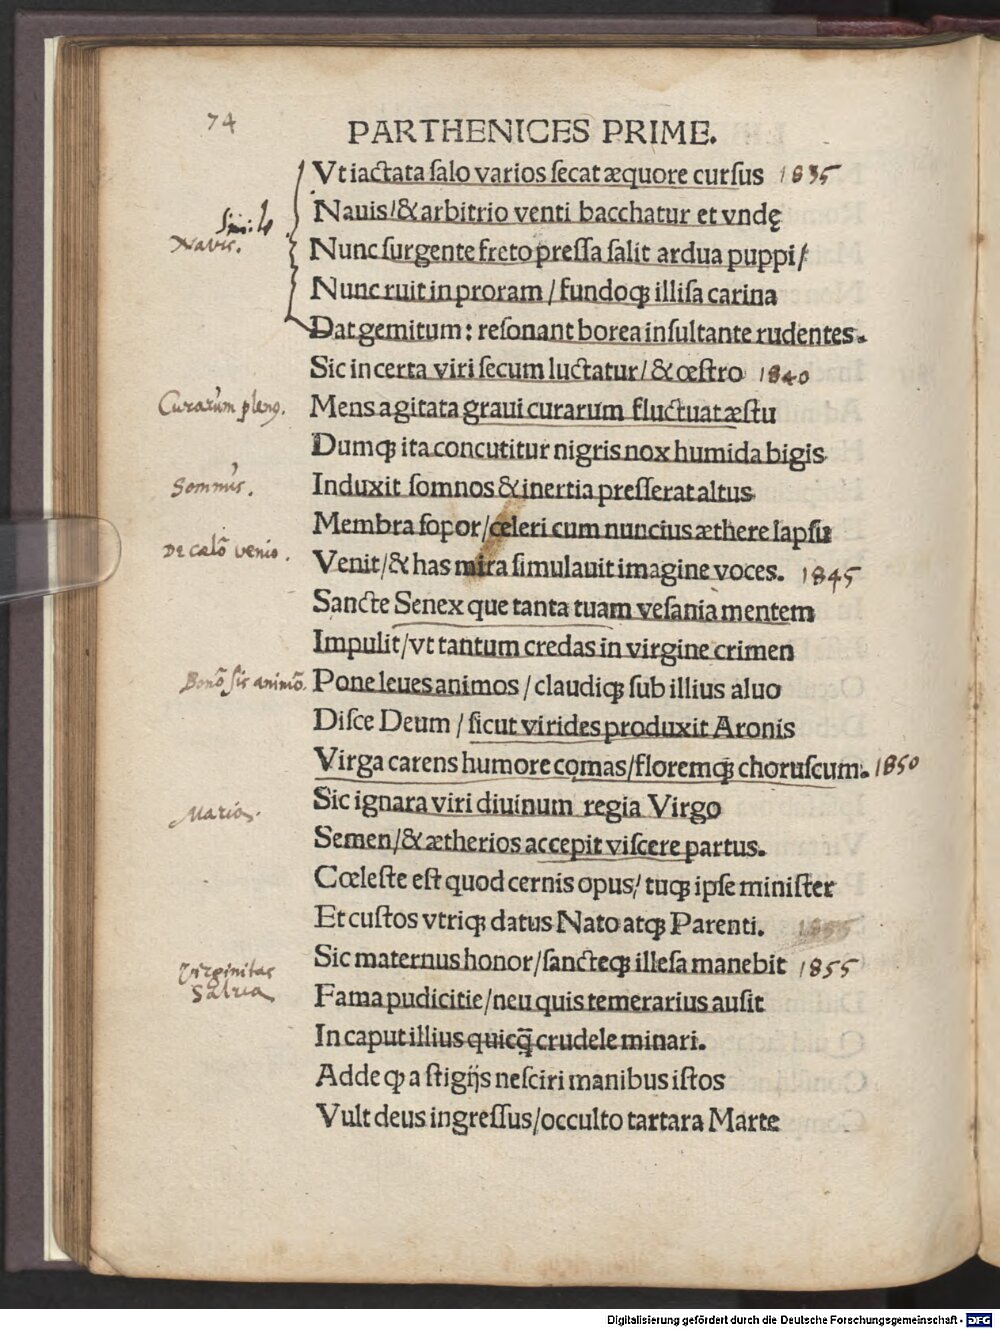 74
PARTHENICES PRIME.
Vt iactata salo varios secat æquore cursus 1835
Simile
Nauis/& arbitrio venti bacchatur et vndę
Nauis.
Nunc surgente freto pressa salit ardua puppi/
Nunc ruit in proram/fundoqꝫ illisa carina
Dat gemitum: resonant borea insultante rudentes.
Sic incerta viri secum luctatur/& œstro 1840
Curarum plenꝰ.
Mens agitata graui curarum fluctuat æstu
Dumqꝫ ita concutitur nigris nox humida bigis
Somnus.
Induxit somnos & inertia presserat altus
Membra sopor/celeri cum nuncius æthere lapsu
De cælo venio.
Venit/& has mira simulauit imagine voces. 1845
Sancte Senex que tanta tuam vesania mentem
Impulit/vt tantum credas in virgine crimen
Bonō sis animō.
Pone leues animos/claudiqꝫ sub illius aluo
Disce Deum/sicut virides produxit Aronis
Virga carens humore comas/floremqꝫ choruscum. 1850
Sic ignara viri diuinum regia Virgo
Maria.
Semen/& ætherios accepit viscere partus.
Cœleste est quod cernis opus/tuqꝫ ipse minister
Et custos vtriqꝫ datus Nato atqꝫ Parenti. 1855
Sic maternus honor/sancteqꝫ illesa manebit 1855
Virginitas
Salua
Fama pudicitie/neu quis temerarius ausit
In caput illius quicq̄ crudele minari.
Adde ꝙ a stigijs nesciri manibus istos
Vult deus ingressus/occulto tartara Marte
Digitalisierung gefördert durch die Deutsche Forschungsgemeinschaft - DFG